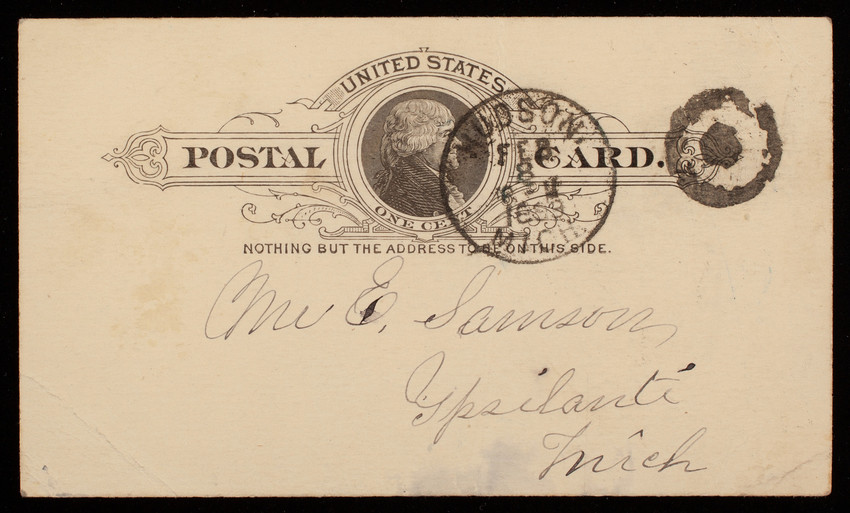 UNITED STATES
POSTAL CARD.
ONE CENT
HUDSON,
FEB
8
MICH.
NOTHING BUT THE ADDRESS TO BE ON THIS SIDE.
Mr E. Samson
Ypsilanti
Mich